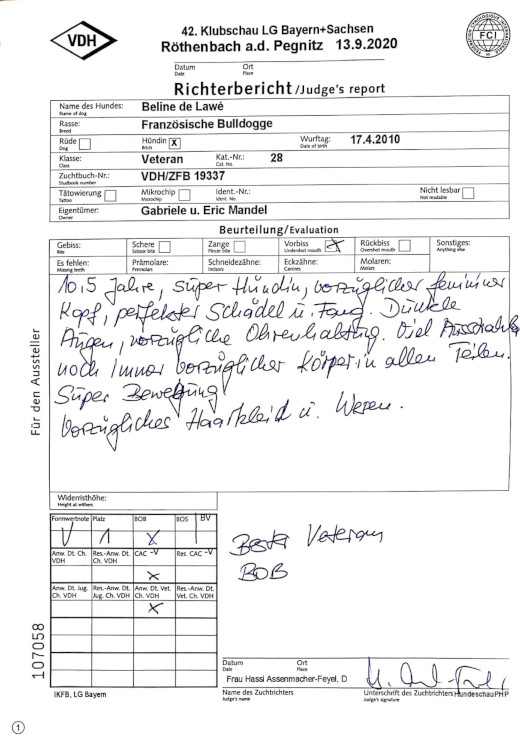 VDH
42. Klubschau LG Bayern+Sachsen
Röthenbach a.d. Pegnitz 13.9.2020
FCI
Datum Ort
Date Place
Richterbericht/Judge's report
Name des Hundes: Beline de Lawé
Name of dog
Rasse: Französische Bulldogge
Breed
Rüde Hündin X Wurftag: 17.4.2010
Dog Bitch Date of birth
Klasse: Veteran Kat.-Nr.: 28
Class Cat. No.
Zuchtbuch-Nr.: VDH/ZFB 19337
Studbook number
Tätowierung Mikrochip Ident.-Nr.: Nicht lesbar
Tattoo Microchip Ident. No. Not readable
Eigentümer: Gabriele u. Eric Mandel
Owner
Beurteilung/Evaluation
Gebiss: Schere Zange Vorbiss X Rückbiss Sonstiges:
Bite Scissor bite Pincer bite Undershot mouth Overshot mouth Anything else
Es fehlen: Prämolare: Schneidezähne: Eckzähne: Molaren:
Missing teeth Premolars Incisors Canines Molars
10,5 Jahre, süper Hündin, vorzüglicher femininer
Kopf, perfekter Schädel u. Fang. Dunkle
Augen, vorzügliche Ohrenhaltung. Viel
noch immer vorzüglicher Körper in allen Teilen.
Süper Bewegung
Vorzügliches Haarkleid u. Wesen.
Für den Aussteller
Widerristhöhe:
Height at withers
Formwertnote Platz BOB BOS BV
V 1 X
Anw. Dt. Ch. VDH Res.-Anw. Dt. Ch. VDH CAC -V Res. CAC -V
X
Anw. Dt. Jug. Ch. VDH Res.-Anw. Dt. Jug. Ch. VDH Anw. Dt. Vet. Ch. VDH Res.-Anw. Dt. Vet. Ch. VDH
X
Bester Veteran
BOB
107058
Datum Ort
Date Place
Frau Hassi Assenmacher-Feyel, D
IKFB, LG Bayern
Name des Zuchtrichters Unterschrift des Zuchtrichters HundeschauPHP
Judge's name Judge's signature
1